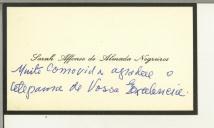 Sarah Affonso de Almada Negreiros
Muito comovida agradece o
telegrama de Vossa Excelencia.